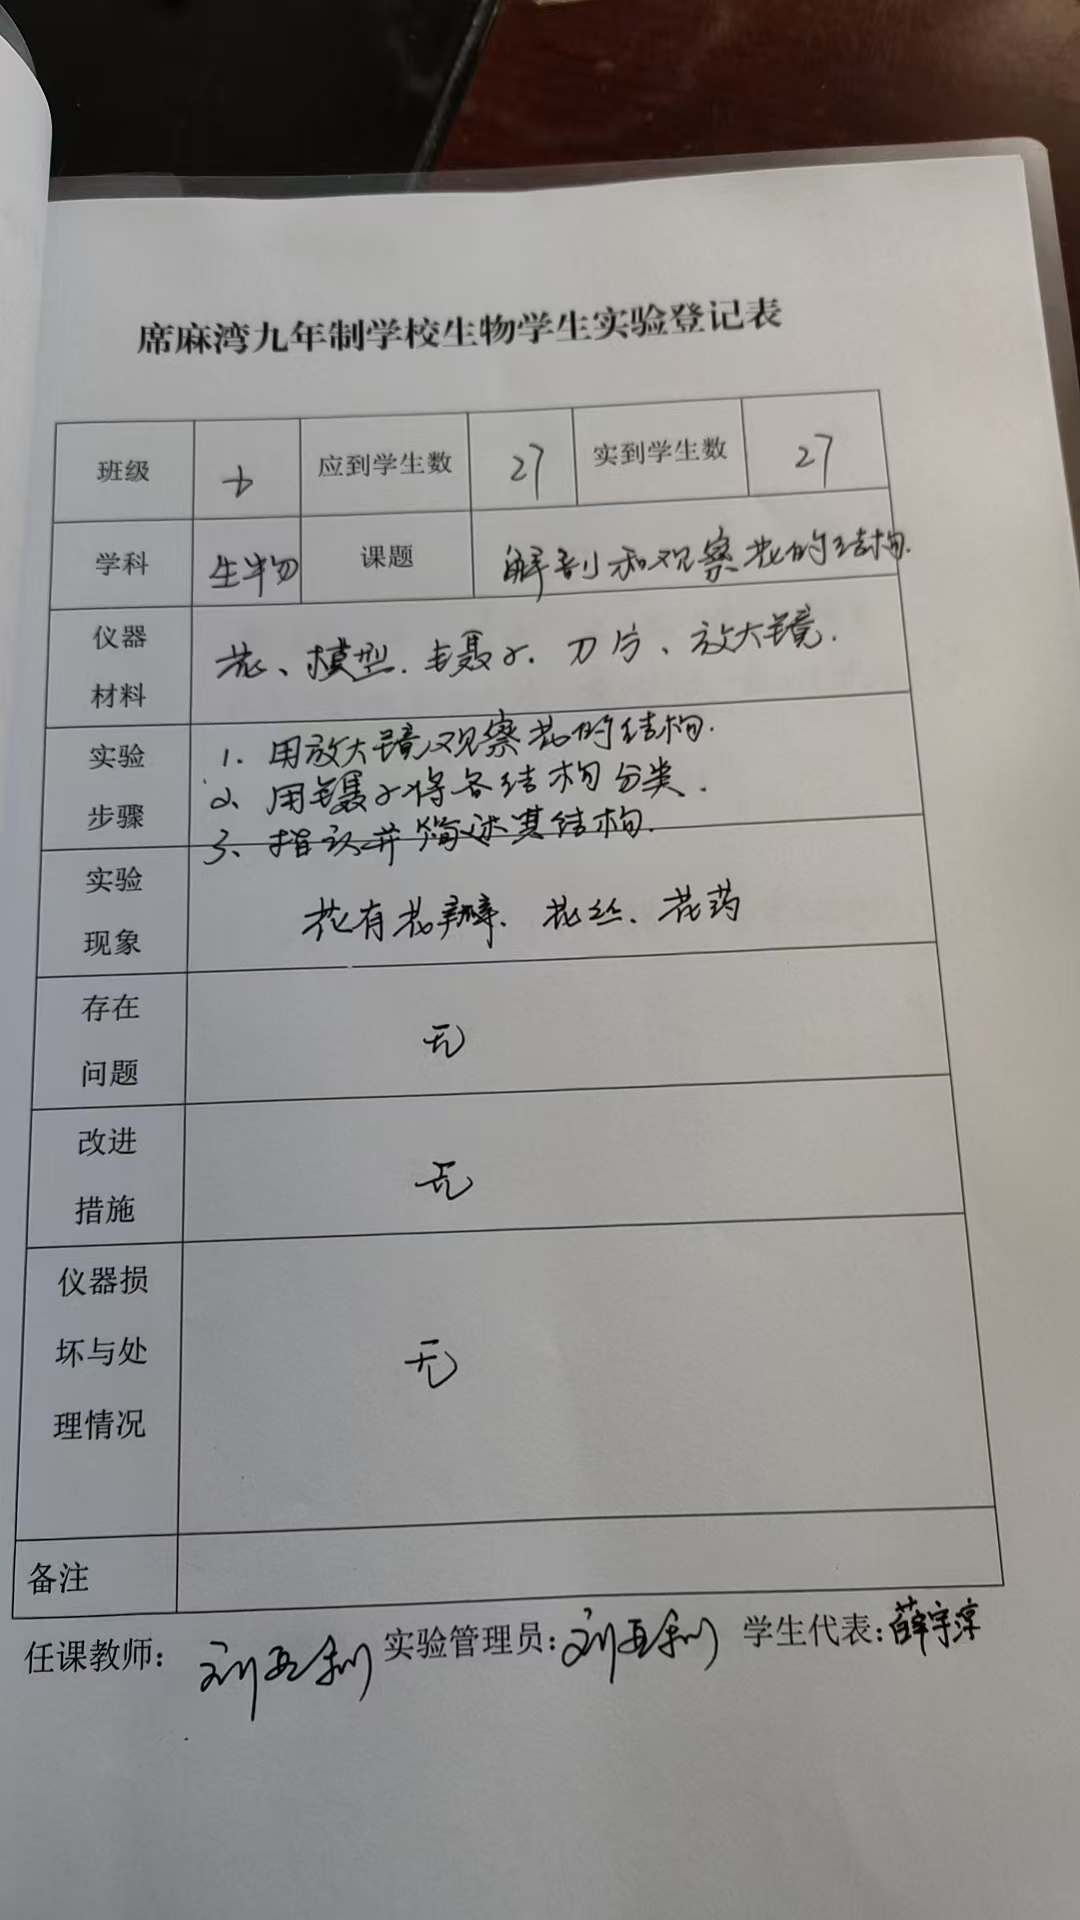 席麻湾九年制学校生物学生实验登记表
班级 应到学生数 27 实到学生数 27
学科 生物 课题 解剖和观察花的结构.
仪器材料 花、模型.镊子.刀片、放大镜.
实验步骤 1.用放大镜观察花的结构.
2、用镊子将各结构分类.
3、指认并简述其结构.
实验现象 花有花瓣、花丝、花药
存在问题 无
改进措施 无
仪器损坏与处理情况 无
备注
任课教师: 刘亚利 实验管理员: 刘亚利 学生代表: 薛宇淳